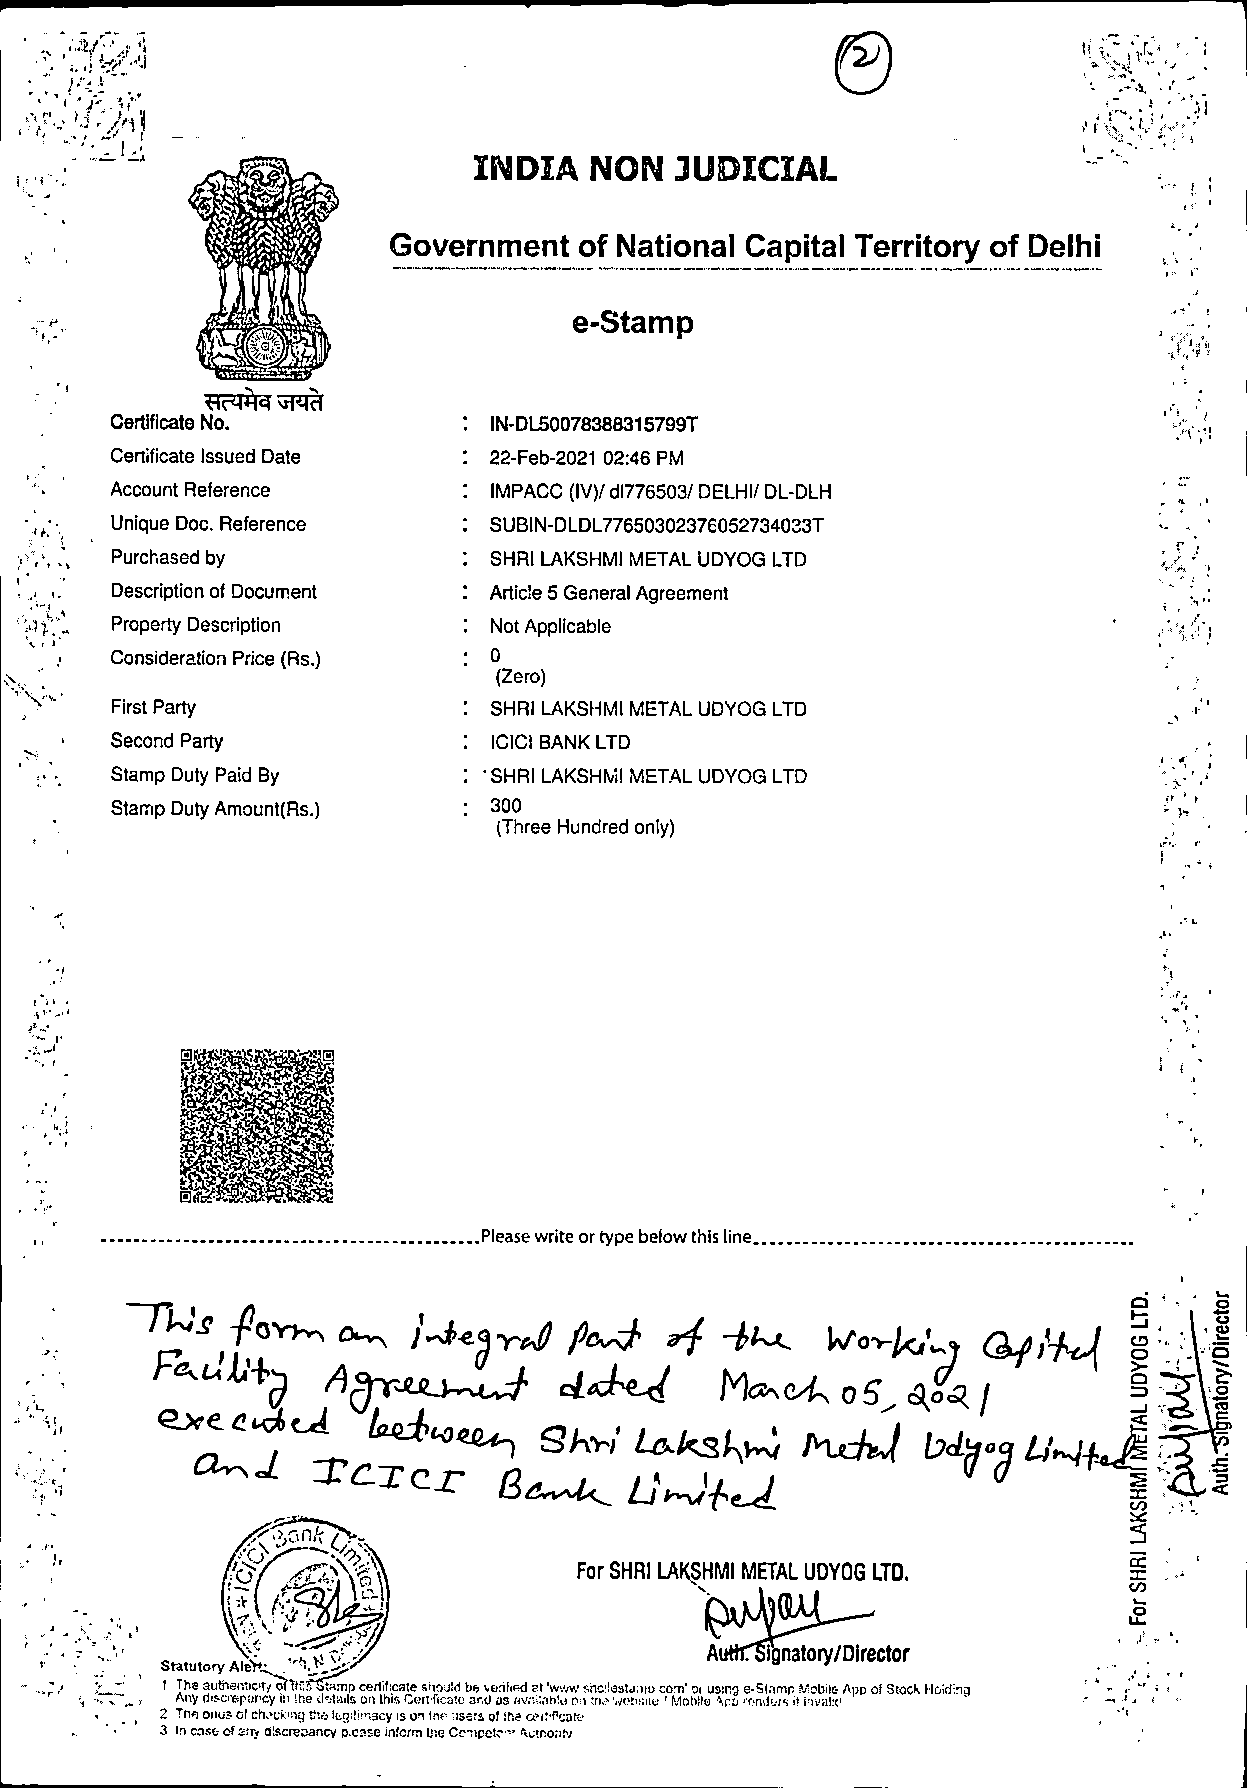 2
INDIA NON JUDICIAL
Government of National Capital Territory of Delhi
e-Stamp
सत्यमेव जयते
Certificate No. : IN-DL50078388315799T
Certificate Issued Date : 22-Feb-2021 02:46 PM
Account Reference : IMPACC (IV)/ dl776503/ DELHI/ DL-DLH
Unique Doc. Reference : SUBIN-DLDL77650302376052734033T
Purchased by : SHRI LAKSHMI METAL UDYOG LTD
Description of Document : Article 5 General Agreement
Property Description : Not Applicable
Consideration Price (Rs.) : 0
(Zero)
First Party : SHRI LAKSHMI METAL UDYOG LTD
Second Party : ICICI BANK LTD
Stamp Duty Paid By : SHRI LAKSHMI METAL UDYOG LTD
Stamp Duty Amount(Rs.) : 300
(Three Hundred only)
Please write or type below this line
This form an integral part of the Working Capital
Facility Agreement dated March 05, 2021
executed between Shri Lakshmi Metal Udyog Limited
and ICICI Bank Limited
For SHRI LAKSHMI METAL UDYOG LTD.
Auth. Signatory/Director
ICICI Bank Limited
For SHRI LAKSHMI METAL UDYOG LTD.
Auth. Signatory/Director
Statutory Alert:
1 The authenticity of this Stamp certificate should be verified at 'www.shcilestamp.com' or using e-Stamp Mobile App of Stock Holding
Any discrepancy in the details on this Certificate and as available on the website / Mobile App renders it invalid
2 The onus of checking the legitimacy is on the users of the certificate
3 In case of any discrepancy please inform the Competent Authority